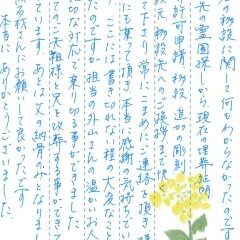 の移設に関して何もわからなか
先の霊園探しから現在の埋葬証明
許可申請 移設 追加の彫刻
移設先へのご挨拶まで快く
て下さり 常にこまめにご連絡を頂き 様
にも乗って頂き 本当に感謝の気持ちでい
ここには書き切れない程の大変なこと
たのですが担当の外山さんの温かいお人
切な対応で乗り切る事ができました
のご先祖様と父を改葬する事ができ
ています あとは父の納骨のみとなりまし
さんにお願いして良かったです
本当にありがとうございました